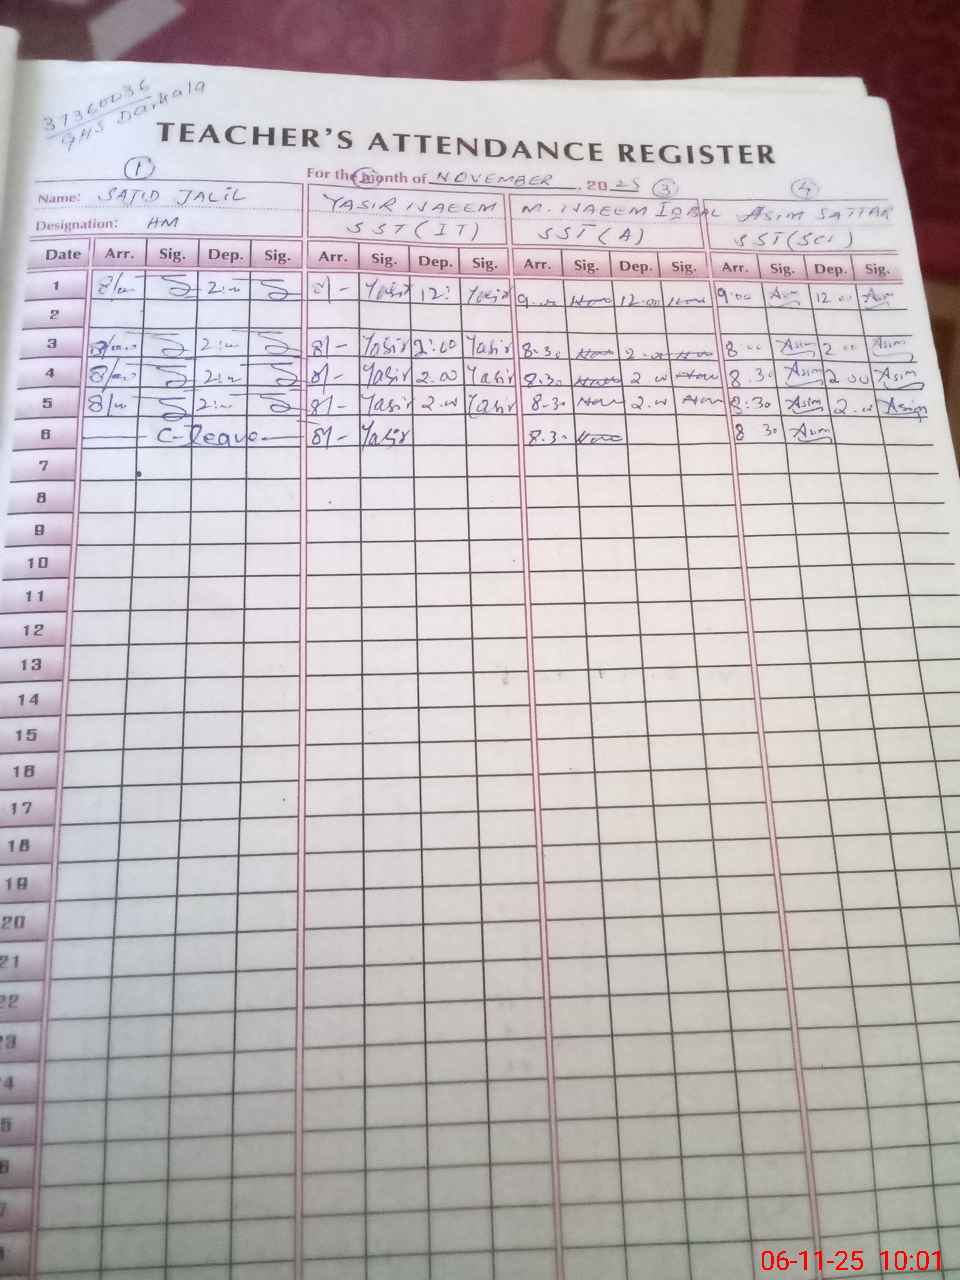 37360036
GHS Darkala
TEACHER'S ATTENDANCE REGISTER
For the month of NOVEMBER, 2025
1 2 3 4
Name: SAJID JALIL YASIR NAEEM M. NAEEM IQBAL ASIM SATTAR
Designation: HM SST(IT) SST(A) SST(SCI)
Date Arr. Sig. Dep. Sig. Arr. Sig. Dep. Sig. Arr. Sig. Dep. Sig. Arr. Sig. Dep. Sig.
1 8/- Yasir 12: Yasir 12.00 9:00 Asim 12.00 Asim
2
3 8/- Yasir 2:00 Yasir 8.30 2.00 8.00 Asim 2.00 Asim
4 8/- Yasir 2.00 Yasir 8.30 2.00 8.30 Asim 2.00 Asim
5 8/- Yasir 2.00 Yasir 8.30 2.00 8.30 Asim 2.00 Asim
6 C-leave 8/- Yasir 8.30 8 30 Asim
7
8
9
10
11
12
13
14
15
16
17
18
19
20
21
22
3
4
5
6
7
06-11-25 10:01